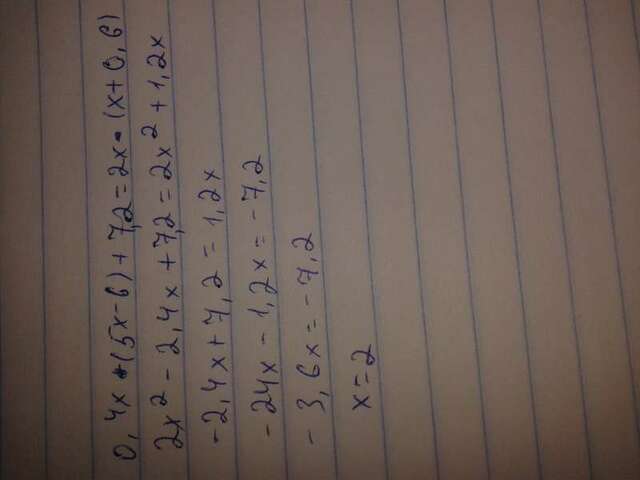 0,4x*(5x-6)+7,2=2x*(x+0,6)
2x²-2,4x+7,2=2x²+1,2x
-2,4x+7,2=1,2x
-24x-1,2x=-7,2
-3,6x=-7,2
x=2